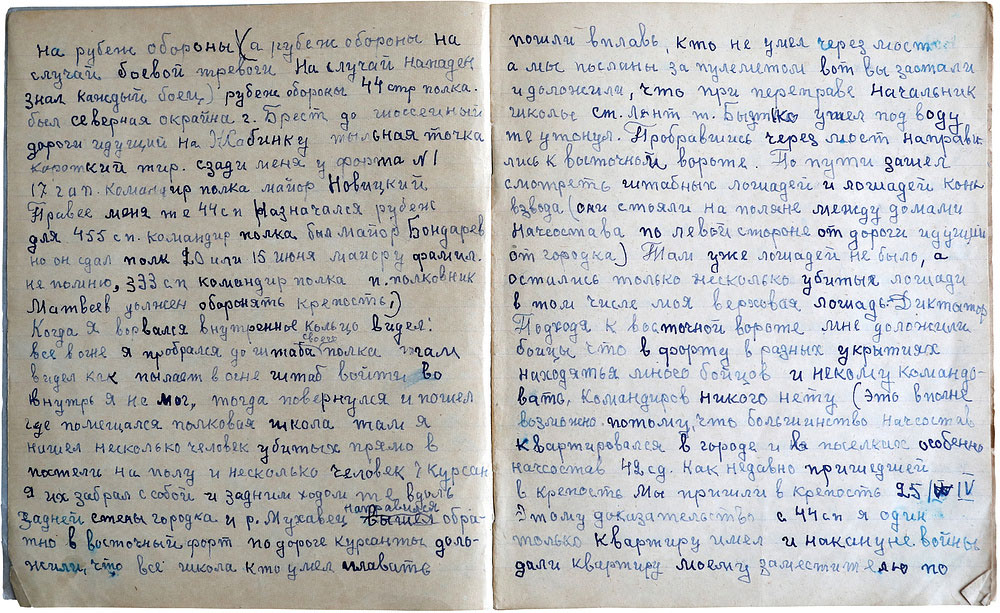 на рубеж обороны (а рубеж обороны на
случай боевой тревоги на случай нападен
знал каждый боец) рубеж обороны 44 стр полка.
был северная окрайна г. Брест до шоссейный
дороги идущий на Кобинку тыльная точка
кий тир. сзади меня у форта N1
17 гап. командир полка майор Новицкий
Правее меня же 44 сп назначался рубеж
для 455 сп. командир полка был майор Бондарев
но он сдал полк 20 или 15 июня майору фамил.
не помню, 333 сп командир полка п. полковник
Матвеев должен оборонять крепость.)
Когда я ворвался внутренное кольцо видел:
все в огне я пробрался до штаба своего полка и там
видел как пылает в огне штаб войти во
внутрь я не мог, тогда повернулся и пошел
где помещался полковая школа там я
нашел несколько человек убитых прямо в
постели на полу и несколько человек 7 курсан
я их забрал с собой и задним ходом же вдоль
задней стены городка и р. Мухавец направился обра-
тно в восточный форт по дороге курсанты доло-
жили, что все школа кто умел плавать
пошли вплавь, кто не умел через мост
а мы посланы за пулеметом вот вы застали
и доложили, что при переправе начальник
школы ст. лент т. Бытко ушел под воду
же утонул. Пробравшись через мост направи-
лись к восточной вороте. По пути зашел
смотреть штабных лошадей и лошадей кон
взвода (они стояли на поляне между домами
начсостава по левой стороне от дороги идущий
от городка) Там уже лошадей не было, а
остались только несколько убитых лошади
в том числе моя верховая лошадь-Диктатор
Подходя к восточной вороте мне доложили
бойцы что в форту в разных укрытиях
находятья много бойцов и некому командо-
вать, командиров никого нету (Это вполне
возможно потому, что большинство начсостав
квартировался в городе и в поселких особенно
начсостав 42 сд. как недавно пришедшей
в крепость Мы пришли в крепость 25/IV
Этому доказательство с 44 сп я один
только квартиру имел и накануне войны
дали квартиру моему заместителю по